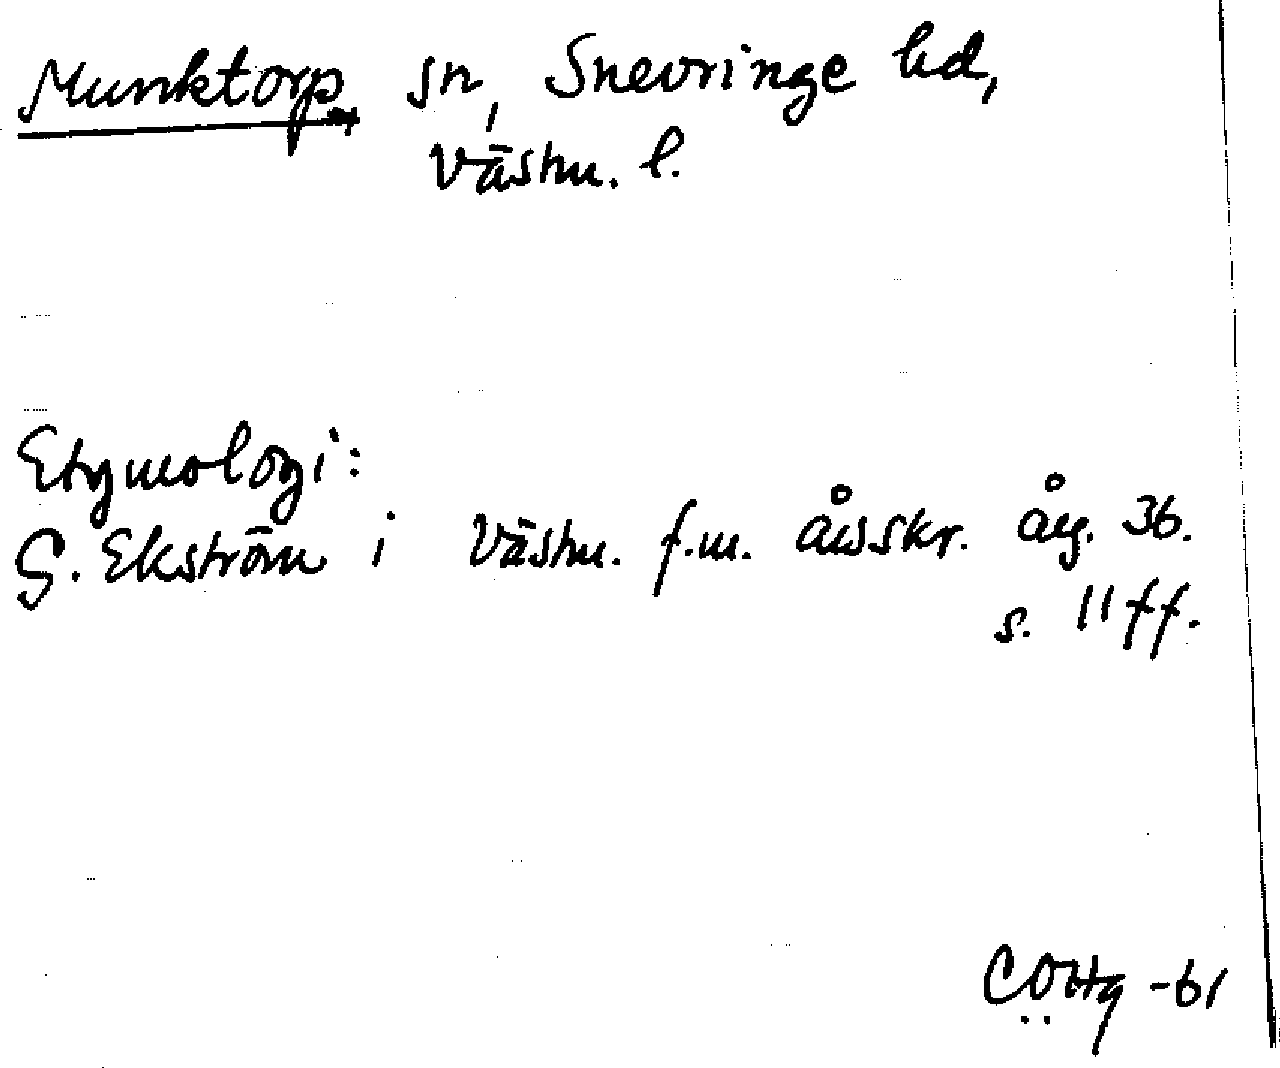 Munktorp, sn, Snevringe hd,
Västm. l.
Etymologi:
G. Ekström i Västm. f.m. årsskr. årg. 36.
s. 11 ff.
-61